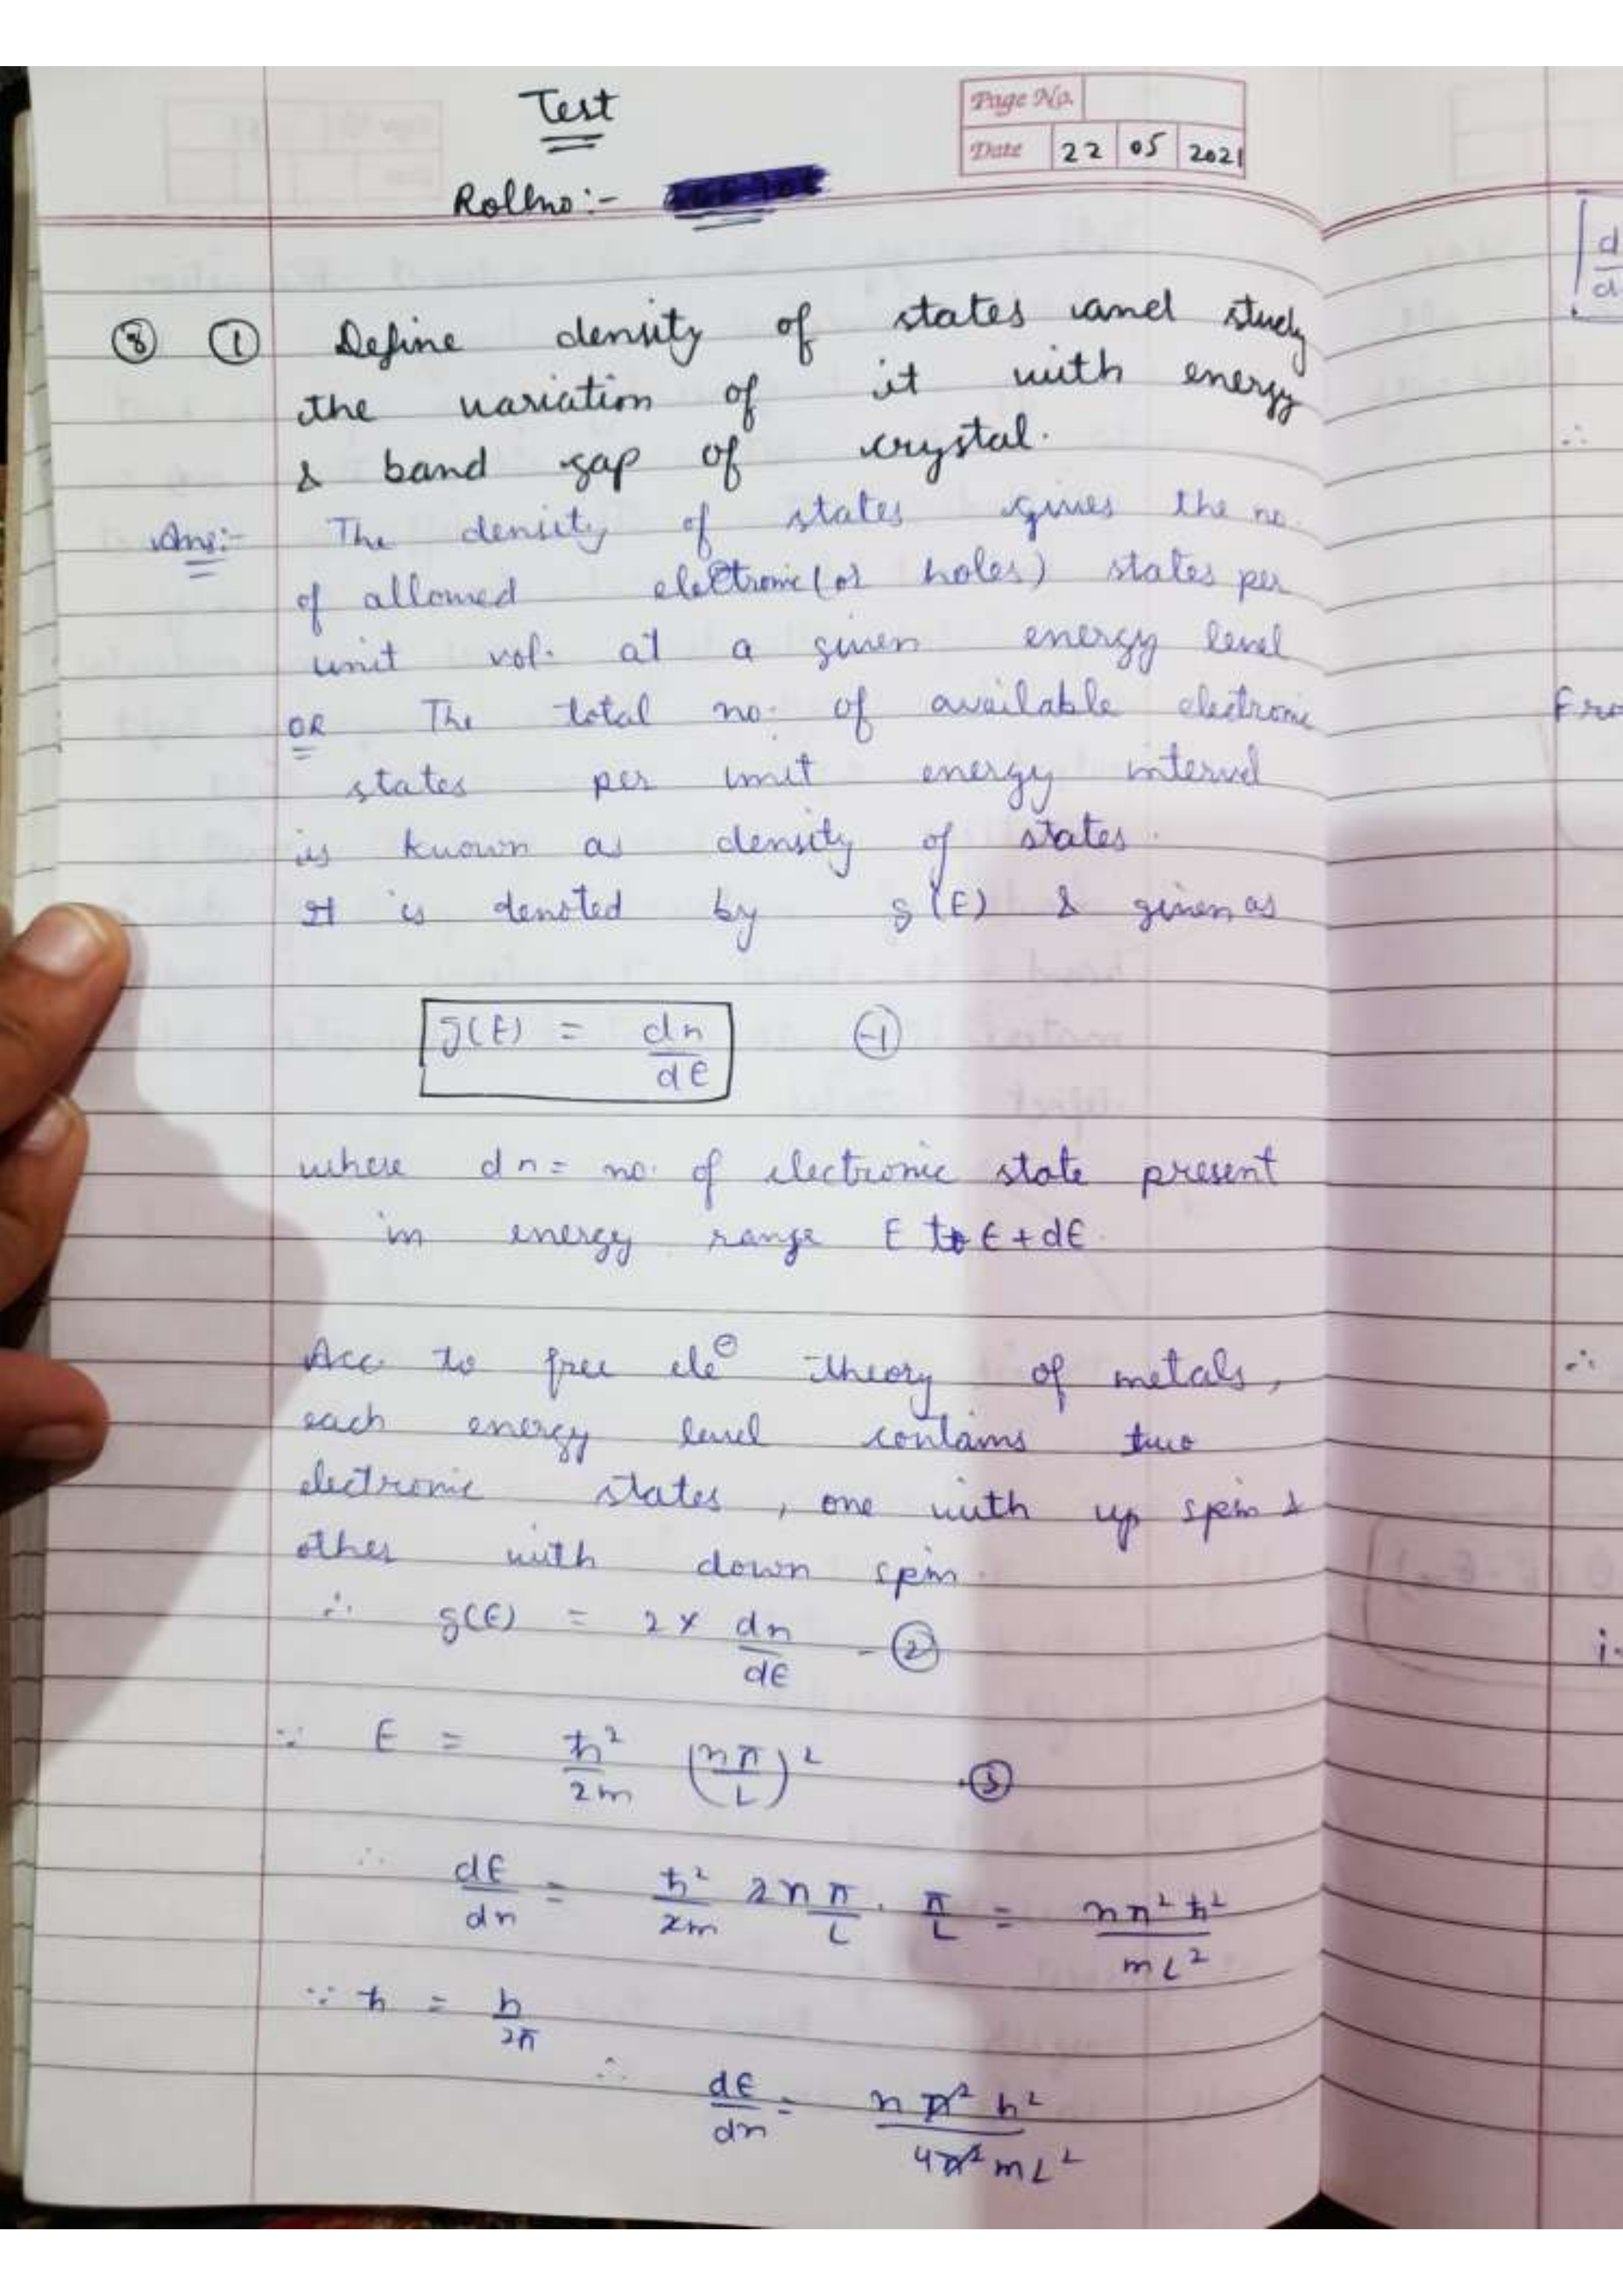 Test
Page No.
Date 22 05 2021
Rollno:-
⑧ ① Define density of states and study
the variation of it with energy
& band gap of crystal.
Ans:- The density of states gives the no.
of allowed electronic (or holes) states per
unit vol. at a given energy level
OR The total no. of available electronic
states per unit energy interval
is known as density of states.
It is denoted by g(E) & given as
g(E) = dn/dE -①
where dn = no. of electronic state present
in energy range E to E+dE.
Acc. to free ele⊖ theory of metals,
each energy level contains two
electronic states, one with up spin &
other with down spin.
∴ g(E) = 2 × dn/dE -②
∵ E = ħ²/2m (nπ/L)² -③
∴ dE/dn = ħ²/2m 2nπ/L . π/L = nπ²ħ²/mL²
∵ ħ = h/2π
∴ dE/dn = nπ²h²/4π²mL²
d
d
∴
Fro
∴
i.